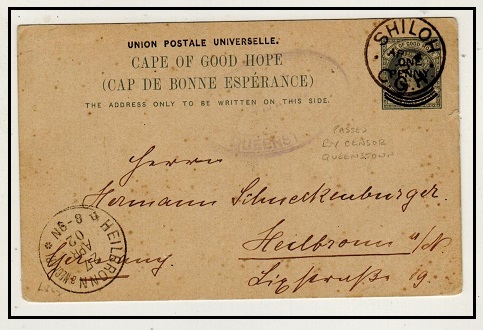 UNION POSTALE UNIVERSELLE.
CAPE OF GOOD HOPE
(CAP DE BONNE ESPÉRANCE)
THE ADDRESS ONLY TO BE WRITTEN ON THIS SIDE.
SHILOH
C.G.H.
ONE
PENNY
QUEENS
PASSED
BY CENSOR
QUEENSTOWN
Herrn
Hermann Schneckenburger
Heilbronn a/N
Germany
19.
HEILBRONN
8-9N
02